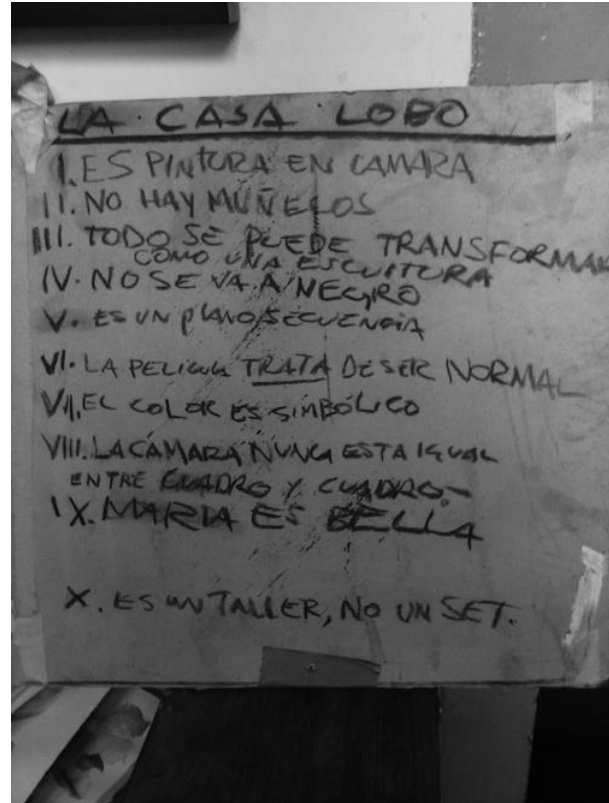 LA CASA LOBO
I. ES PINTURA EN CAMARA
II. NO HAY MUÑECOS
III. TODO SE PUEDE TRANSFORMAR
COMO UNA ESCULTURA
IV. NO SE VA A NEGRO
V. ES UN PLANO SECUENCIA
VI. LA PELICULA TRATA DE SER NORMAL
VII. EL COLOR ES SIMBÓLICO
VIII. LA CÁMARA NUNCA ESTA IGUAL
ENTRE CUADRO Y CUADRO
IX. MARIA ES BELLA
X. ES UN TALLER, NO UN SET.